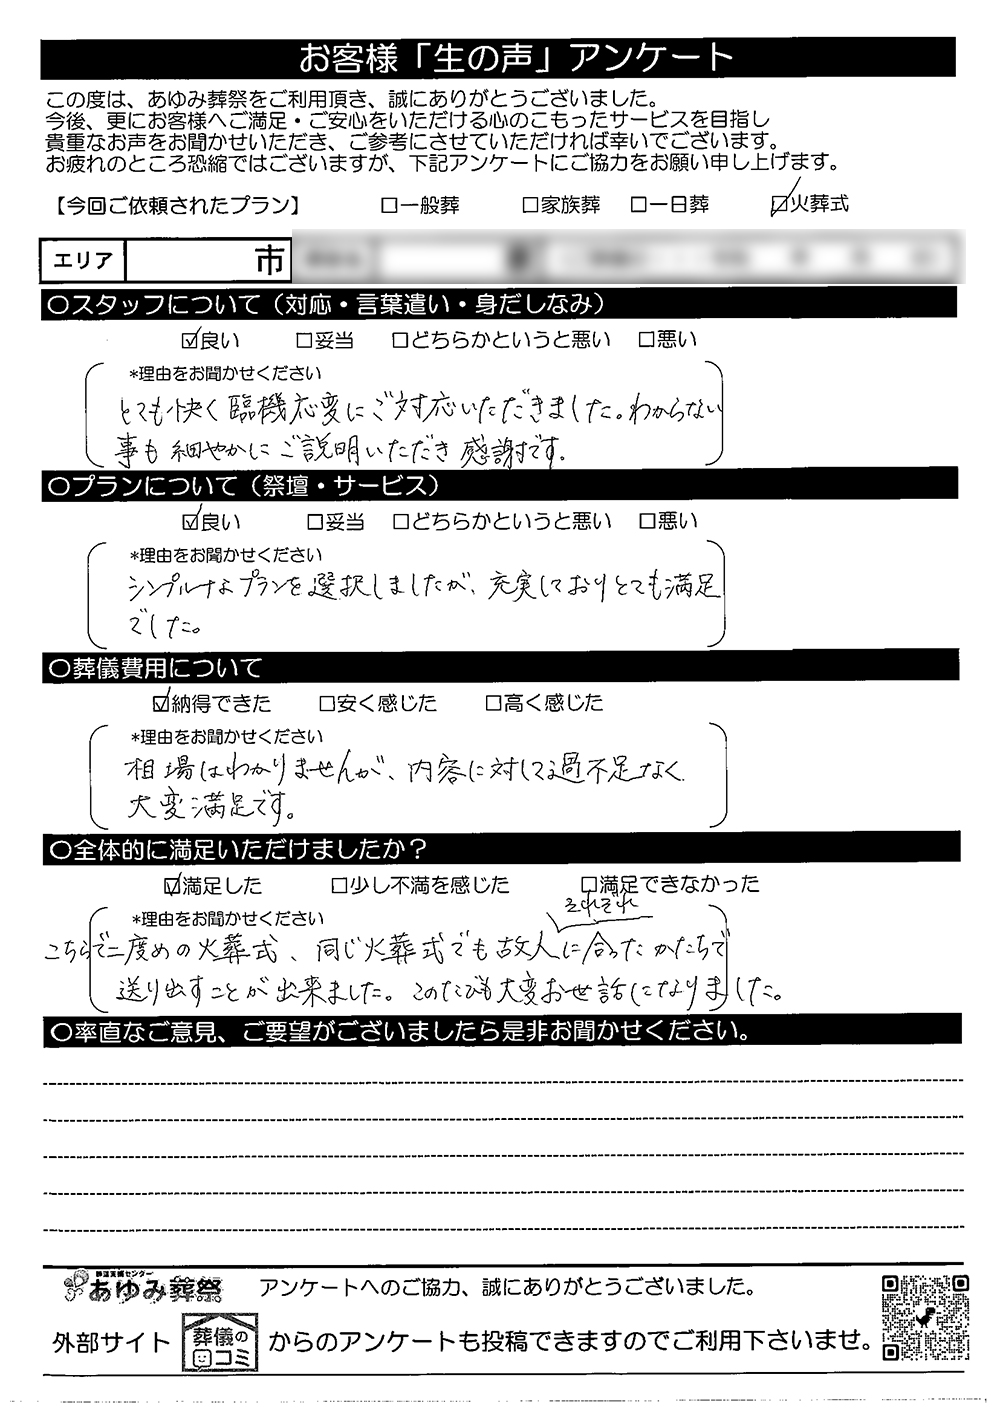 お客様「生の声」アンケート
この度は、あゆみ葬祭をご利用頂き、誠にありがとうございました。
今後、更にお客様へご満足・ご安心をいただける心のこもったサービスを目指し
貴重なお声をお聞かせいただき、ご参考にさせていただければ幸いでございます。
お疲れのところ恐縮ではございますが、下記アンケートにご協力をお願い申し上げます。
【今回ご依頼されたプラン】 □一般葬 □家族葬 □一日葬 ☑火葬式
エリア 市
○スタッフについて（対応・言葉遣い・身だしなみ）
☑良い □妥当 □どちらかというと悪い □悪い
*理由をお聞かせください
とても快く臨機応変にご対応いただきました。わからない
事も細やかにご説明いただき感謝です。
○プランについて（祭壇・サービス）
☑良い □妥当 □どちらかというと悪い □悪い
*理由をお聞かせください
シンプルなプランを選択しましたが、充実しておりとても満足
でした。
○葬儀費用について
☑納得できた □安く感じた □高く感じた
*理由をお聞かせください
相場はわかりませんが、内容に対して過不足なく
大変満足です。
○全体的に満足いただけましたか？
☑満足した □少し不満を感じた □満足できなかった
*理由をお聞かせください
それぞれ
こちらで二度めの火葬式、同じ火葬式でも故人に合ったかたちで
送り出すことが出来ました。このたびも大変お世話になりました。
○率直なご意見、ご要望がございましたら是非お聞かせください。
葬送支援センター
あゆみ葬祭 アンケートへのご協力、誠にありがとうございました。
外部サイト 葬儀の口コミ からのアンケートも投稿できますのでご利用下さいませ。